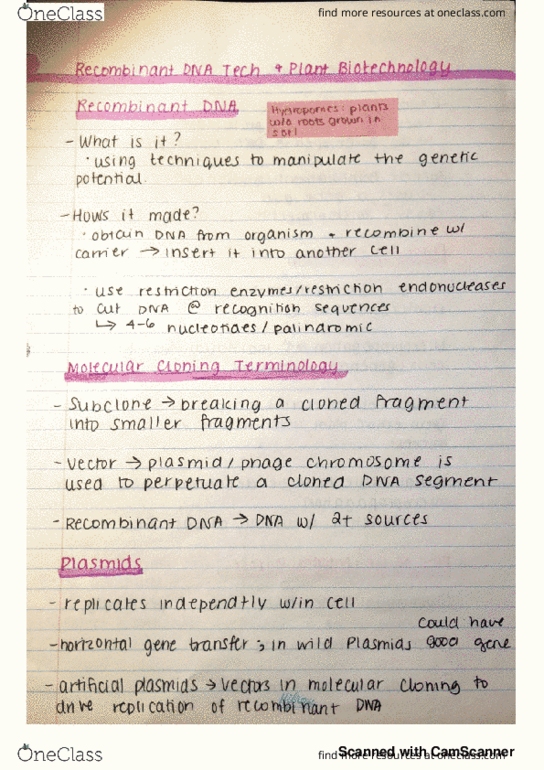 OneClass
find more resources at oneclass.com
Recombinant DNA Tech + Plant Biotechnology
Recombinant DNA
Hydroponics: plants
w/o roots grown in
soil
- What is it?
· using techniques to manipulate the genetic
potential.
- Hows it made?
· obtain DNA from organism + recombine w/
carrier → insert it into another cell
· use restriction enzymes/restriction endonucleases
to cut DNA @ recognition sequences
↳ 4-6 nucleotides/palindromic
Molecular Cloning Terminology
- Subclone → breaking a cloned fragment
into smaller fragments
- Vector → plasmid/phage chromosome is
used to perpetuate a cloned DNA segment
- Recombinant DNA → DNA w/ 2+ sources
Plasmids
- replicates independtly w/in cell
could have
- horizontal gene transfer; in wild Plasmids good gene
- artificial plasmids → vectors in molecular cloning to
drive replication of recombinant DNA
OneClass
find more resources at oneclass.com
Scanned with CamScanner